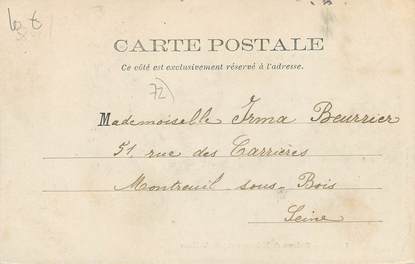 CARTE POSTALE
Ce côté est exclusivement réservé à l'adresse.
72)
Mademoiselle Irma Beurrier
51, rue des Carrières
Montreuil sous-Bois
Seine